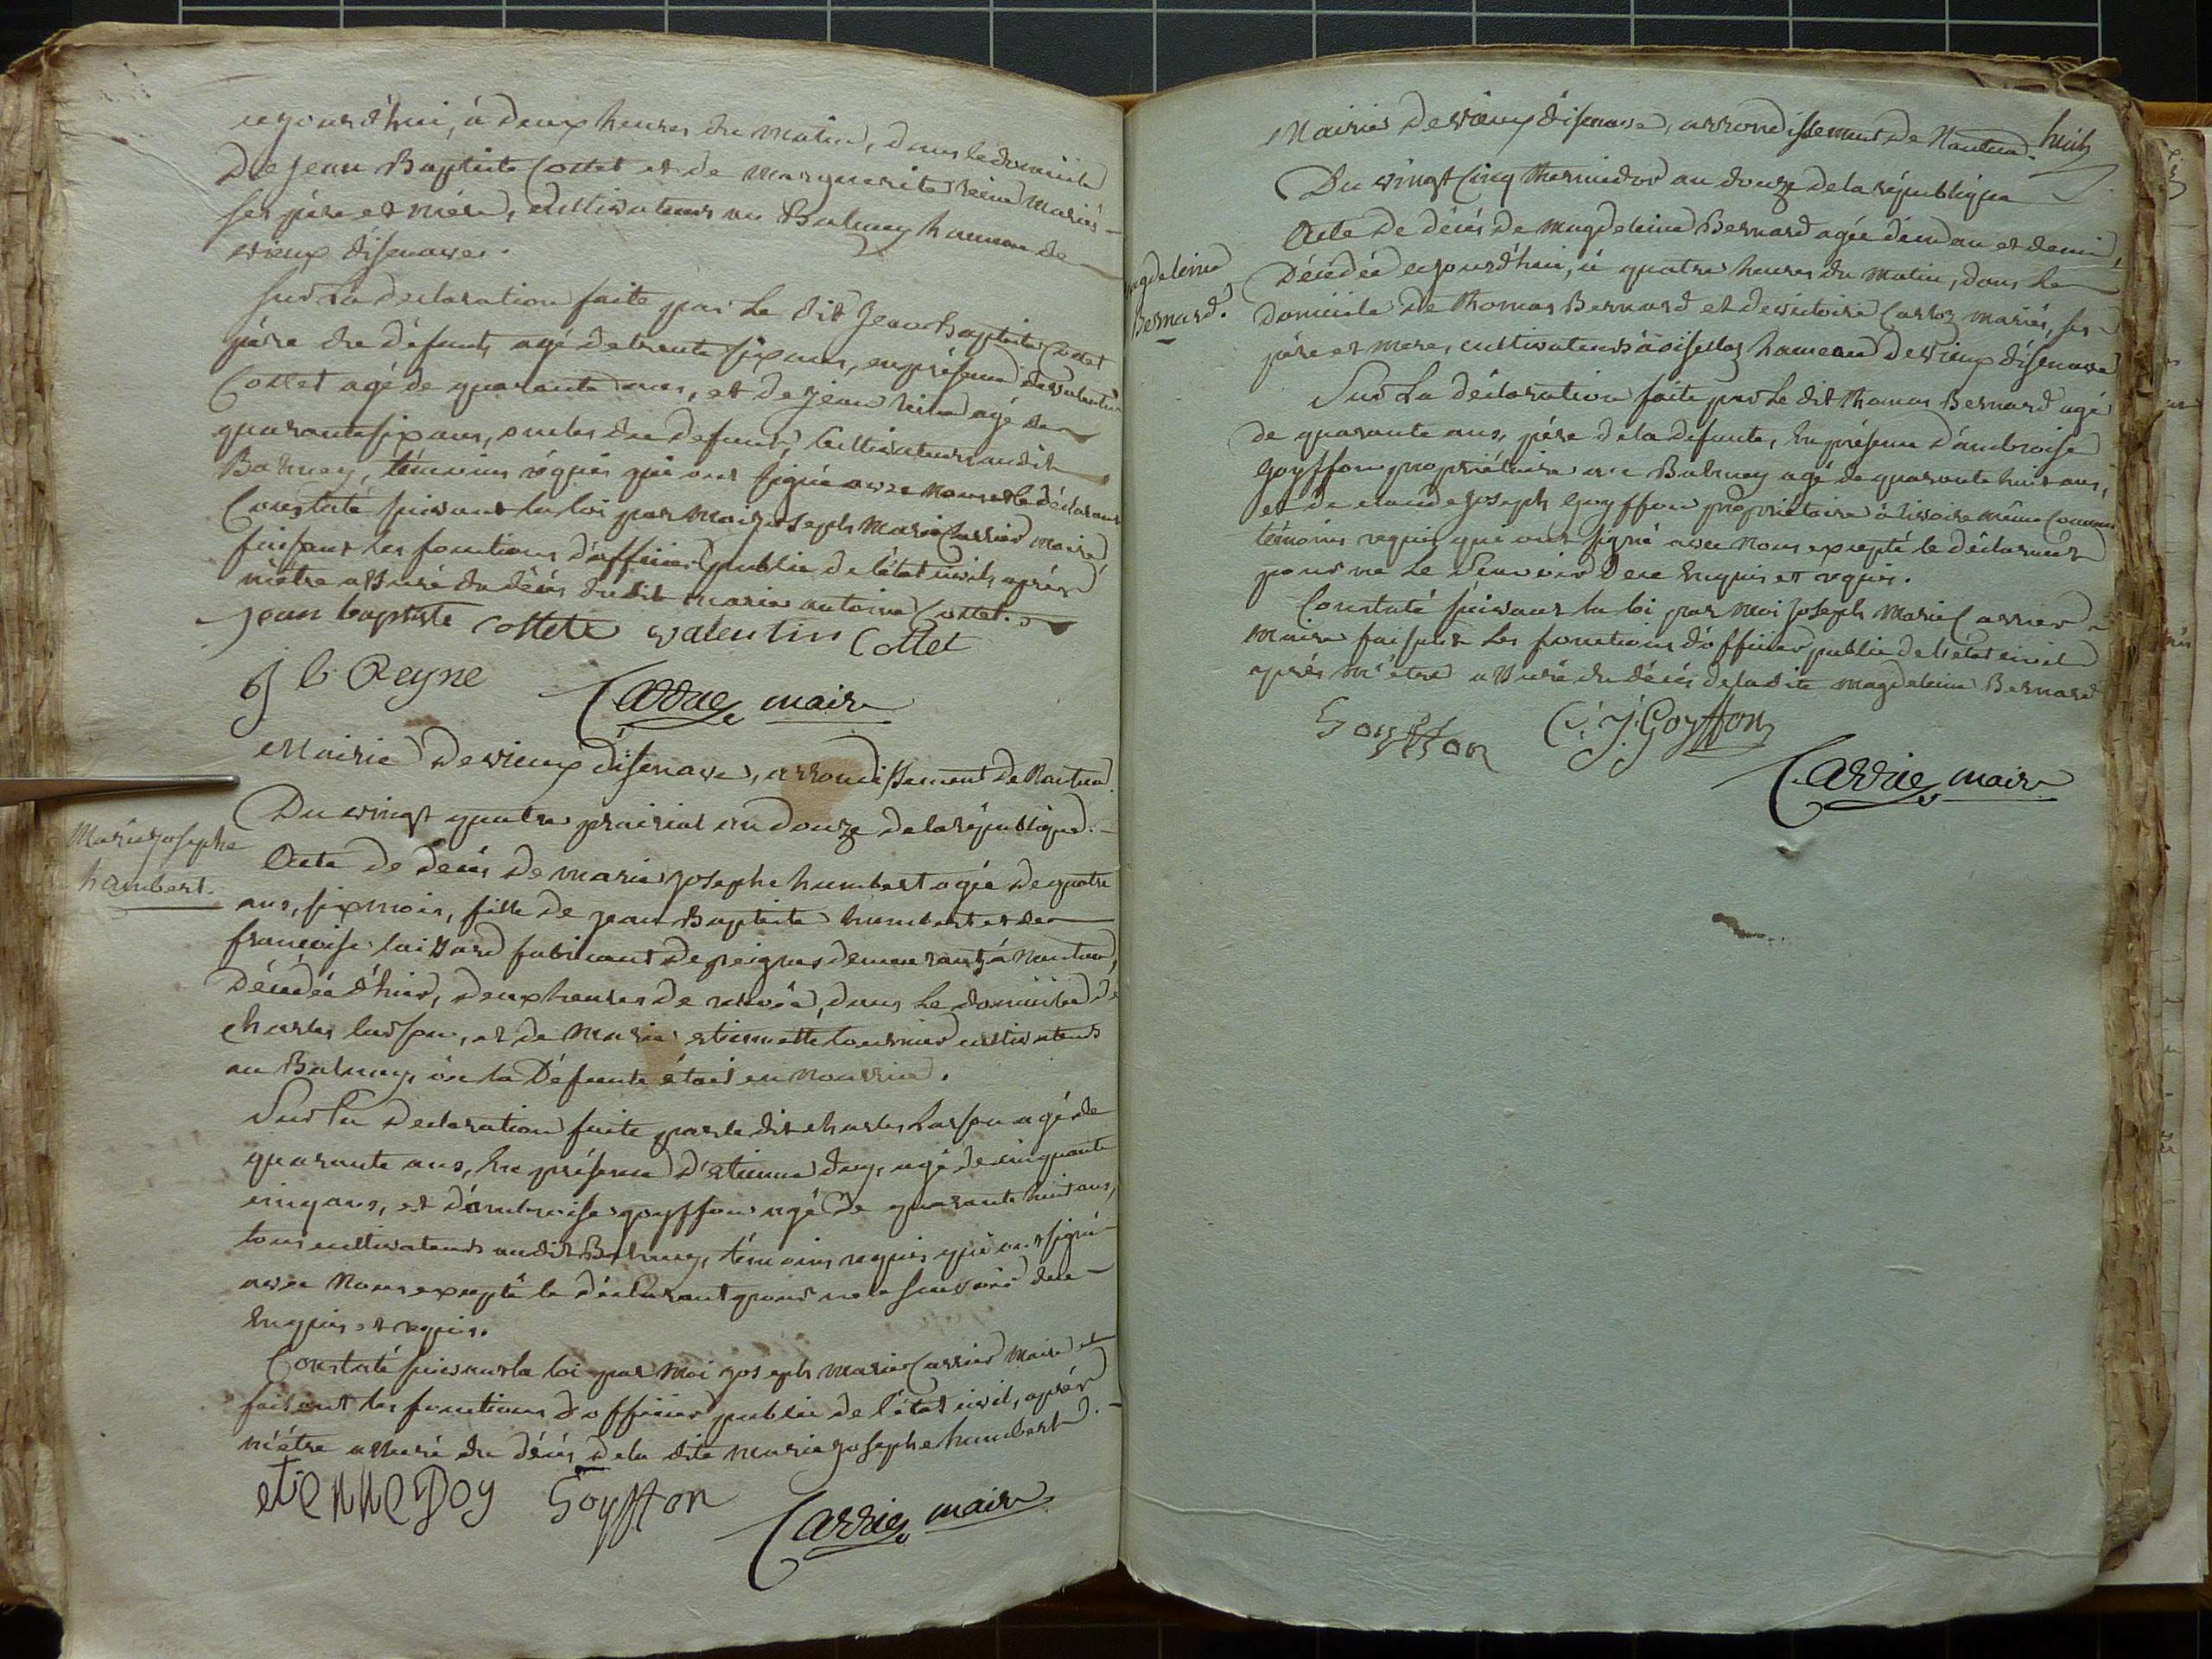 aujourd'hui, à deux heures du matin, dans le domicile
De jean Baptiste Cottet et de marguerite reine mariés
ses père et mère, cultivateurs au Balmay hameau de
vieux d'isenave.
Sur La déclaration faite par Le dit Jean baptiste Cottet
père du défunt, agé de trente six ans, en présence de valentin
Cottet agé de quarante ans, et de jean reine agé de
quarante six ans, oncles du defunt, Cultivateurs audit
Balmay, témoins réquis qui ont signé avec nous et le déclarant
Constaté suivant la loi par moi joseph marie Carrier maire
faisant les fonctions d'officier public de l'état civil, après
m'être assuré du décès dudit marie antoine Cottet.
jean baptiste Cottet valentin Cottet
j b Reyne
Carrier maire
Mairie De vieux d'isenave, arrondissement de Nantua.
Du vingt quatre prairial an douze de la république.
Marie josephe
humbert.
Acte de décès de marie josephe humbert agée de quatre
ans, six mois, fille de jean Baptiste humbert et de
françoise luissard fabricant de peignes demeurant à Nantua,
Décédée d'hier, deux heures de relevée, dans Le domicile de
charles lurson, et de Marie etiennette tournier cultivateurs
au Balmay, où la Défunte étoit en nourrice.
Sur la Declaration faite par le dit charles Larson agé de
quarante ans, En présence d'etienne doy, agé de cinquante
cinq ans, et d'ambroise goyffon agé de quarante huit ans,
tous cultivateurs audit Balmay, témoins requis qui ont signé
avec Nous excepté le déclarant pour ne le sçavoir de ce
Enquis et requis.
Constaté suivant la loi par moi joseph marie Carrier Maire et
faisant les fonctions d'officier public de l'état civil, après
m'être assuré du décès de la dite marie josephe humbert.
etienne Doy Goyffon
Carrier maire
Mairie De vieux d'isenave, arrondissement de Nantua.
huit
Du vingt Cinq thermidor an douze de la république
Magdeleine
Bernard.
Acte de décès de magdeleine Bernard agée d'un an et demi,
Décédée aujourd'hui, à quatre heures du matin, dans Le
domicile de thomas Bernard et de victoire Carloz mariés, ses
père et mere, cultivateurs à oisellaz hameau de vieux d'isenave
Sur La déclaration faite par Le dit thomas Bernard agé
de quarante ans, père de la defunte, En présence d'ambroise
goyffon propriétaire au Balmay agé de quarante huit ans,
et de claude joseph goyffon propriétaire à livoire même Commune
témoins requis qui ont signé avec nous excepté le déclarant
pour ne Le Sçavoir de ce Enquis et requis.
Constaté suivant la loi par moi joseph Marie Carrier
maire faisant Les fonctions d'officier public de l'état civil
après m'être assuré du décès de la dite magdeleine Bernard
Goyffon C. J. Goyffon
Carrier maire